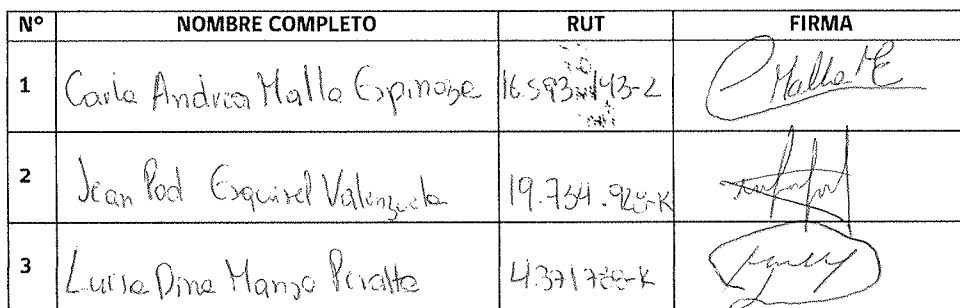 N° NOMBRE COMPLETO RUT FIRMA
1 Carla Andrea Malla Espinoza 16.593.143-2 Malla ME
2 Jean Esquivel Valenzuela
3 Luisa Dina Manso Peralta